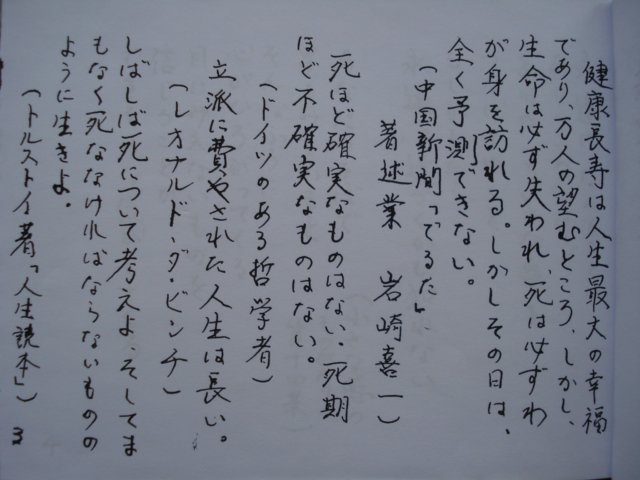 健康長寿は人生最大の幸福
であり、万人の望むところ、しかし、
生命は必ず失われ、死は必ずわ
が身を訪れる。しかしその日は、
全く予測できない。
(中国新聞「でるた」、
著述業 岩崎喜一)
死ほど確実なものはない、死期
ほど不確実なものはない。
(ドイツのある哲学者)
立派に費やされた人生は長い。
(レオナルド・ダ・ビンチ)
しばしば死について考えよ、そしてま
もなく死ななければならないものの
ように生きよ。
(トルストイ著「人生読本」)
3